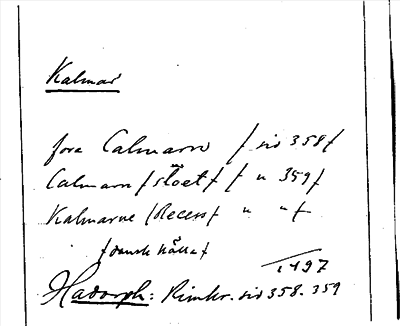 Kalmar
fore Calmarn / sid 358/
Calmarn / sloet / / u 359/
Kalmarne / Recess / u u /
/ dansk källa /
1497
Hadorph: Rimkr. sid 358. 359